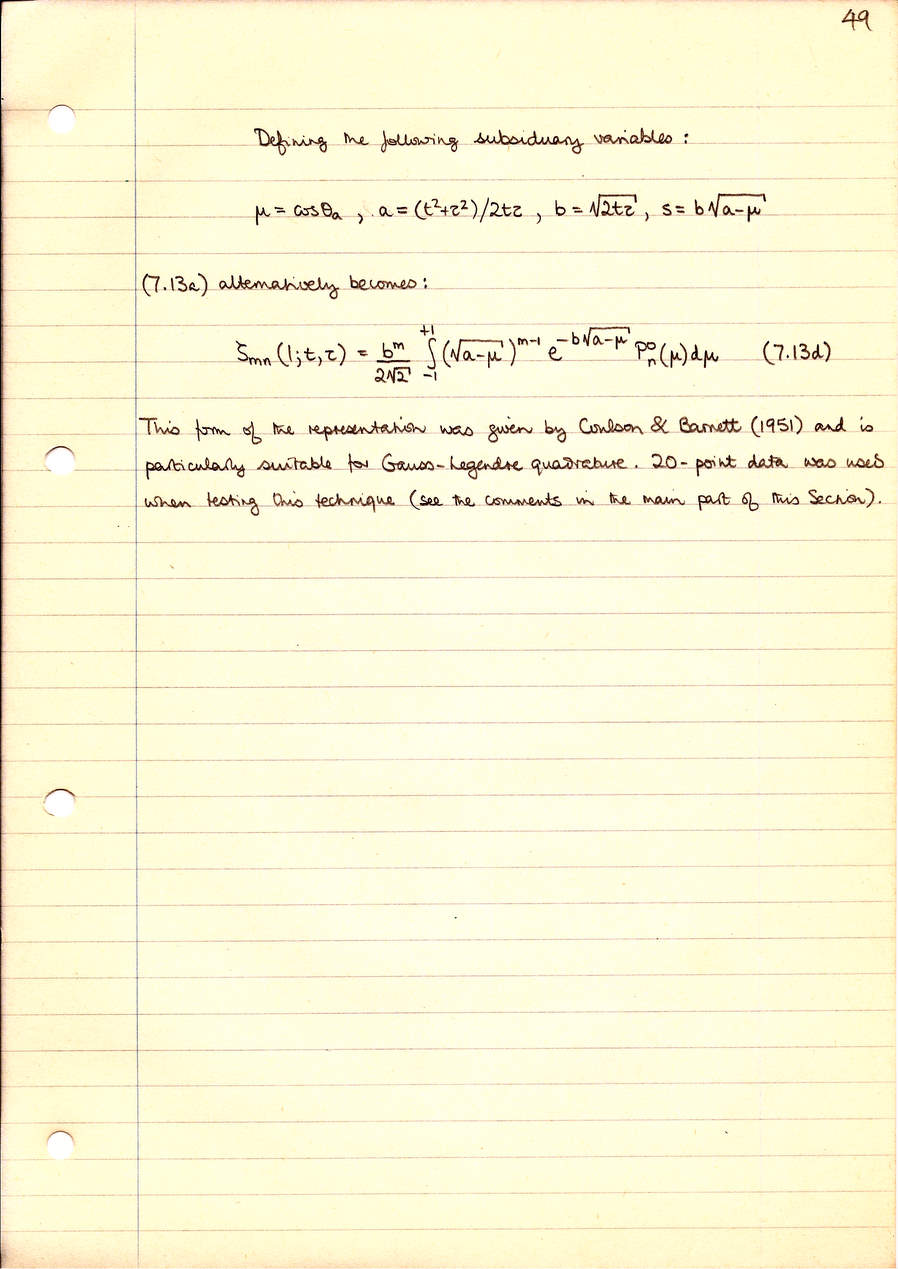 49
Defining the following subsiduary variables :
μ = cosθₐ , a = (t²+τ²)/2tτ , b = √2tτ , s = b√a-μ
(7.13a) alternatively becomes :
ζₘₙ (1;t,τ) = bᵐ/2√2 ∫₋₁⁺¹ (√a-μ)ᵐ⁻¹ e^(-b√a-μ) Pₙ⁰(μ)dμ (7.13d)
This form of the representation was given by Coulson & Barnett (1951) and is
particularly suitable for Gauss-Legendre quadrature. 20-point data was used
when testing this technique (see the comments in the main part of this Section).